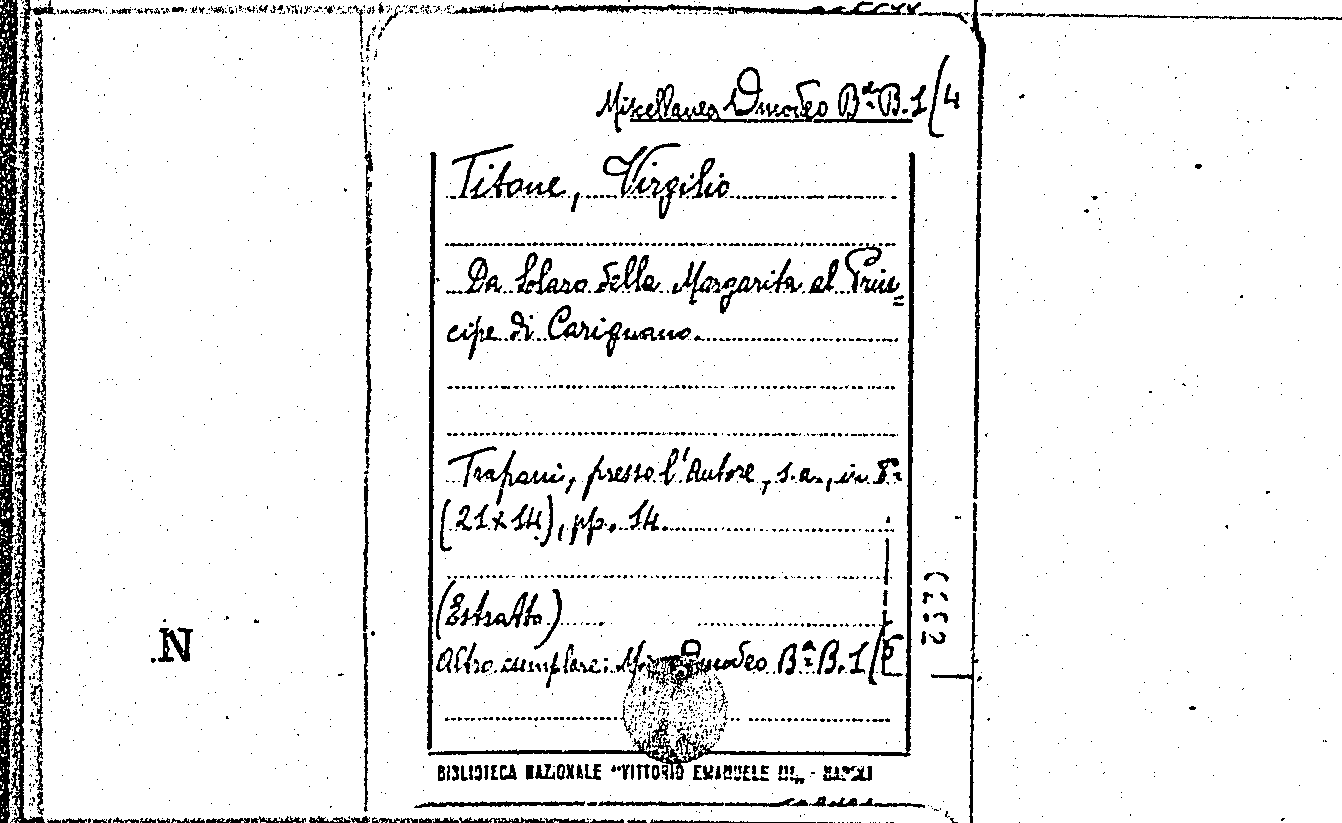 Miscellanea Omodeo Bª. B. 1/4
Titone, Virgilio
Da Solaro della Margarita al Prin=
cipe di Carignano.
Trapani, presso l'Autore, s.a., in 8°.
(21x14), pp. 14.
(Estratto)
N
Altro esemplare: Omodeo Bª. B. 1/5
BIBLIOTECA NAZIONALE "VITTORIO EMANUELE III„ - NAPOLI